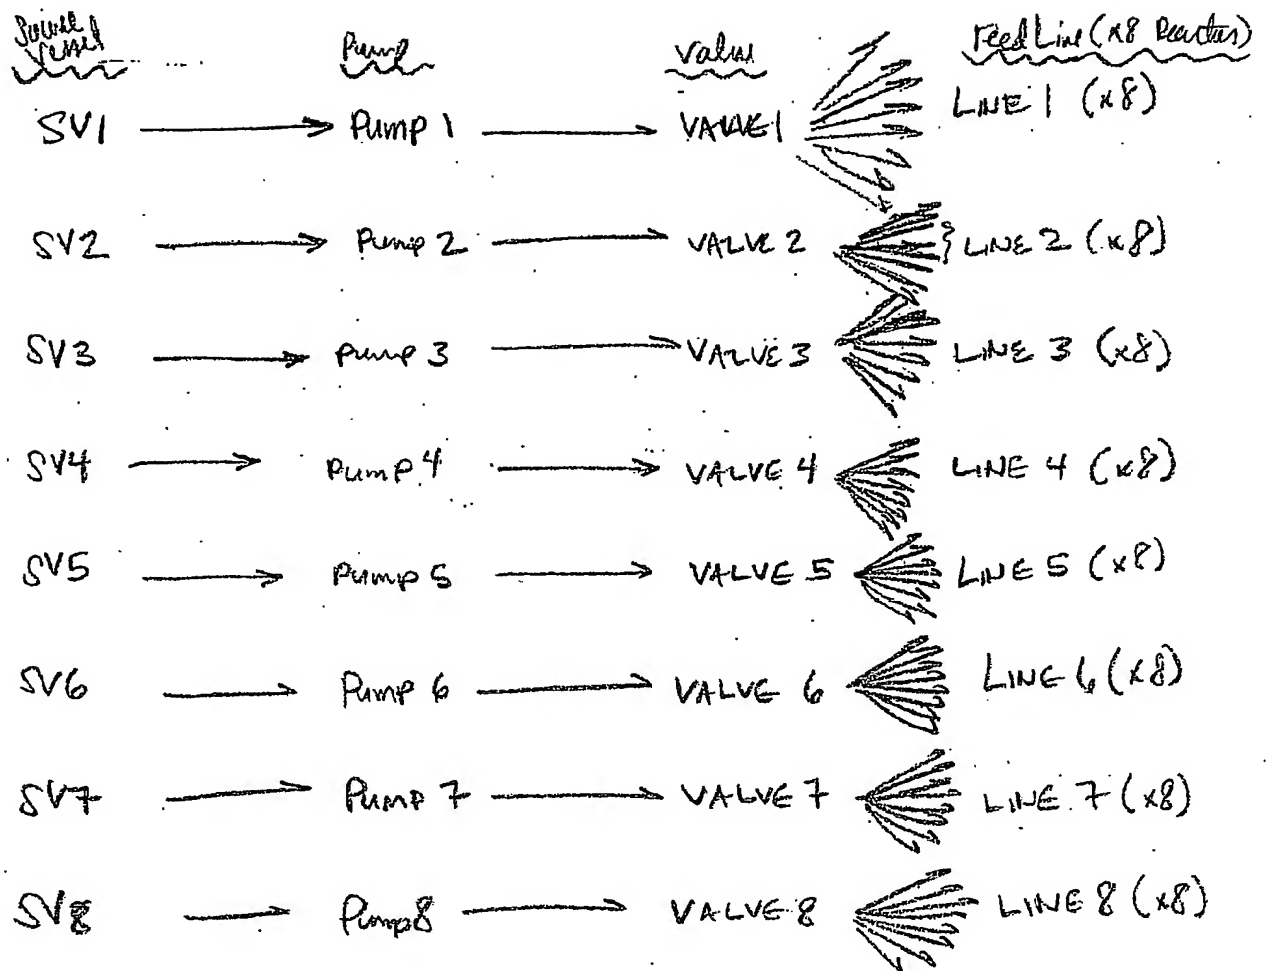 Source Vessel Pump Valve Feed Line (x8 Reactors)
SV1 Pump 1 VALVE 1 LINE 1 (x8)
SV2 Pump 2 VALVE 2 } LINE 2 (x8)
SV3 Pump 3 VALVE 3 LINE 3 (x8)
SV4 Pump 4 VALVE 4 LINE 4 (x8)
SV5 Pump 5 VALVE 5 LINE 5 (x8)
SV6 Pump 6 VALVE 6 LINE 6 (x8)
SV7 Pump 7 VALVE 7 LINE 7 (x8)
SV8 Pump 8 VALVE 8 LINE 8 (x8)